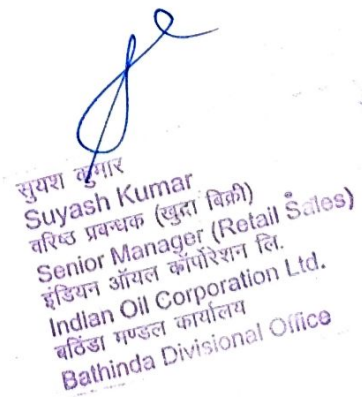 सुयश कुमार
Suyash Kumar
वरिष्ठ प्रबन्धक (खुदा बिक्री)
Senior Manager (Retail Sales)
इंडियन ऑयल कॉर्पोरेशन लि.
Indian Oil Corporation Ltd.
बठिंडा मण्डल कार्यालय
Bathinda Divisional Office